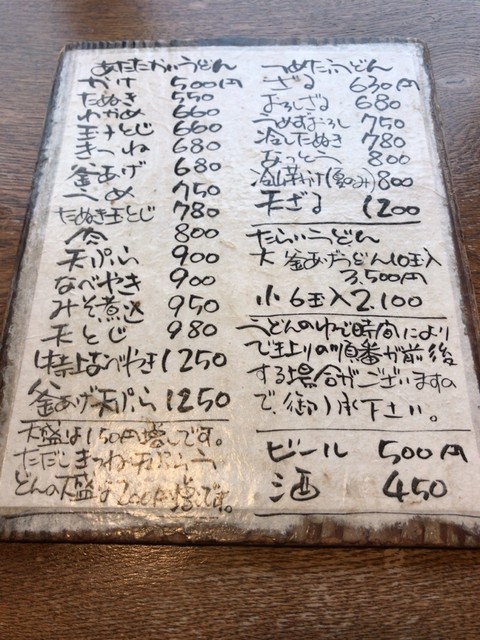 あたたかいうどん
かけ 500円
たぬき 550
わかめ 660
玉子とじ 660
きつね 680
釜あげ 680
うめ 750
たぬき玉とじ 780
肉 800
天ぷら 900
なべやき 900
みそ煮込 950
天とじ 980
特上なべやき 1250
釜あげ天ぷら 1250
大盛は150円増しです。
ただしきつね・天ぷらう
どんの大盛は200円増です。
つめたいうどん
ざる 630円
おろしざる 680
うめおろし 750
冷したぬき 780
なっとう 800
冷山芋かけ(夏のみ) 800
天ざる 1200
たらいうどん
大 釜あげうどん10玉入
3.500円
小 6玉入 2.100
うどんのゆで時間により
で上りの順番が前後
する場合がございますの
で、御了承下さい。
ビール 500円
酒 450